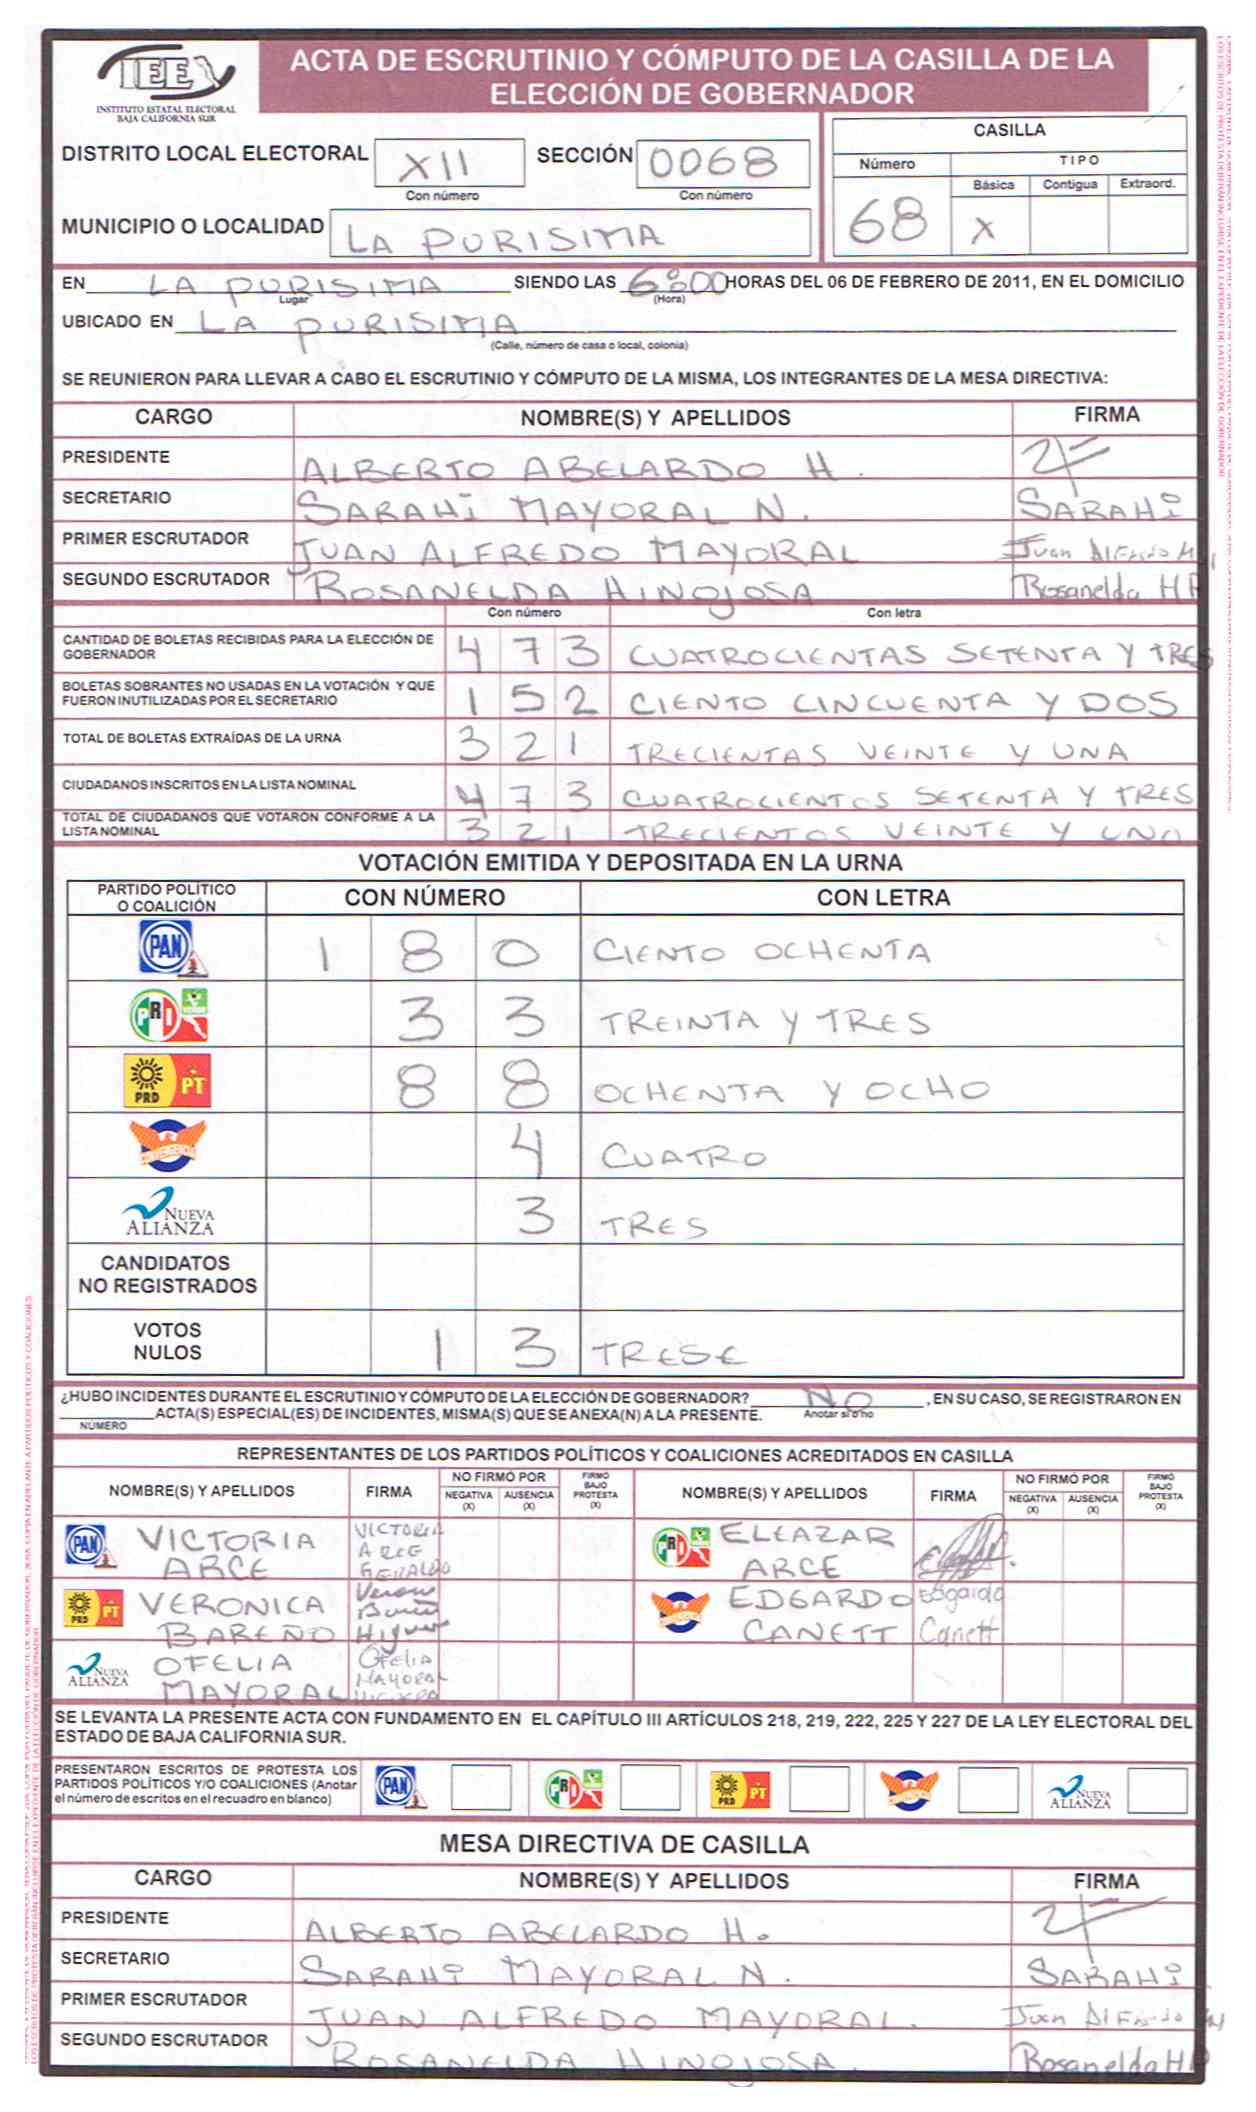 IEE
INSTITUTO ESTATAL ELECTORAL
BAJA CALIFORNIA SUR
ACTA DE ESCRUTINIO Y CÓMPUTO DE LA CASILLA DE LA
ELECCIÓN DE GOBERNADOR
DISTRITO LOCAL ELECTORAL XII SECCIÓN 0068
Con número Con número
MUNICIPIO O LOCALIDAD LA PURISIMA
CASILLA
Número TIPO
Básica Contigua Extraord.
68 X
EN LA PURISIMA SIENDO LAS 6:00 HORAS DEL 06 DE FEBRERO DE 2011, EN EL DOMICILIO
Lugar (Hora)
UBICADO EN LA PURISIMA
(Calle, número de casa o local, colonia)
SE REUNIERON PARA LLEVAR A CABO EL ESCRUTINIO Y CÓMPUTO DE LA MISMA, LOS INTEGRANTES DE LA MESA DIRECTIVA:
CARGO NOMBRE(S) Y APELLIDOS FIRMA
PRESIDENTE ALBERTO ABELARDO H.
SECRETARIO SARAHI MAYORAL N. SARAHI
PRIMER ESCRUTADOR JUAN ALFREDO MAYORAL Juan Alfredo
SEGUNDO ESCRUTADOR ROSANELDA HINOJOSA Rosanelda H
Con número Con letra
CANTIDAD DE BOLETAS RECIBIDAS PARA LA ELECCIÓN DE
GOBERNADOR 4 7 3 CUATROCIENTAS SETENTA Y TRES
BOLETAS SOBRANTES NO USADAS EN LA VOTACIÓN Y QUE
FUERON INUTILIZADAS POR EL SECRETARIO 1 5 2 CIENTO CINCUENTA Y DOS
TOTAL DE BOLETAS EXTRAÍDAS DE LA URNA 3 2 1 TRECIENTAS VEINTE Y UNA
CIUDADANOS INSCRITOS EN LA LISTA NOMINAL 4 7 3 CUATROCIENTOS SETENTA Y TRES
TOTAL DE CIUDADANOS QUE VOTARON CONFORME A LA
LISTA NOMINAL 3 2 1 TRECIENTOS VEINTE Y UNO
VOTACIÓN EMITIDA Y DEPOSITADA EN LA URNA
PARTIDO POLÍTICO
O COALICIÓN CON NÚMERO CON LETRA
PAN 1 8 0 CIENTO OCHENTA
PRI 3 3 TREINTA Y TRES
PRD PT 8 8 OCHENTA Y OCHO
CONVERGENCIA 4 CUATRO
NUEVA ALIANZA 3 TRES
CANDIDATOS
NO REGISTRADOS
VOTOS
NULOS 1 3 TRESE
¿HUBO INCIDENTES DURANTE EL ESCRUTINIO Y CÓMPUTO DE LA ELECCIÓN DE GOBERNADOR? NO , EN SU CASO, SE REGISTRARON EN
ACTA(S) ESPECIAL(ES) DE INCIDENTES, MISMA(S) QUE SE ANEXA(N) A LA PRESENTE. Anotar si o no
NÚMERO
REPRESENTANTES DE LOS PARTIDOS POLÍTICOS Y COALICIONES ACREDITADOS EN CASILLA
NOMBRE(S) Y APELLIDOS FIRMA NO FIRMÓ POR NEGATIVA (X) AUSENCIA (X) FIRMÓ BAJO PROTESTA (X) NOMBRE(S) Y APELLIDOS FIRMA NO FIRMÓ POR NEGATIVA (X) AUSENCIA (X) FIRMÓ BAJO PROTESTA (X)
PAN VICTORIA ARCE VICTORIA ARCE GERALDO PRI ELEAZAR ARCE
PRD PT VERONICA BAREÑO CONVERGENCIA EDGARDO CANETT Edgardo Canett
NUEVA ALIANZA OFELIA MAYORAL OFELIA MAYORAL HIGUERA
SE LEVANTA LA PRESENTE ACTA CON FUNDAMENTO EN EL CAPÍTULO III ARTÍCULOS 218, 219, 222, 225 Y 227 DE LA LEY ELECTORAL DEL
ESTADO DE BAJA CALIFORNIA SUR.
PRESENTARON ESCRITOS DE PROTESTA LOS
PARTIDOS POLÍTICOS Y/O COALICIONES (Anotar
el número de escritos en el recuadro en blanco) PAN PRI PRD PT CONVERGENCIA NUEVA ALIANZA
MESA DIRECTIVA DE CASILLA
CARGO NOMBRE(S) Y APELLIDOS FIRMA
PRESIDENTE ALBERTO ABELARDO H.
SECRETARIO SARAHI MAYORAL N. SARAHI
PRIMER ESCRUTADOR JUAN ALFREDO MAYORAL. Juan Alfredo
SEGUNDO ESCRUTADOR ROSANELDA HINOJOSA. Rosanelda H